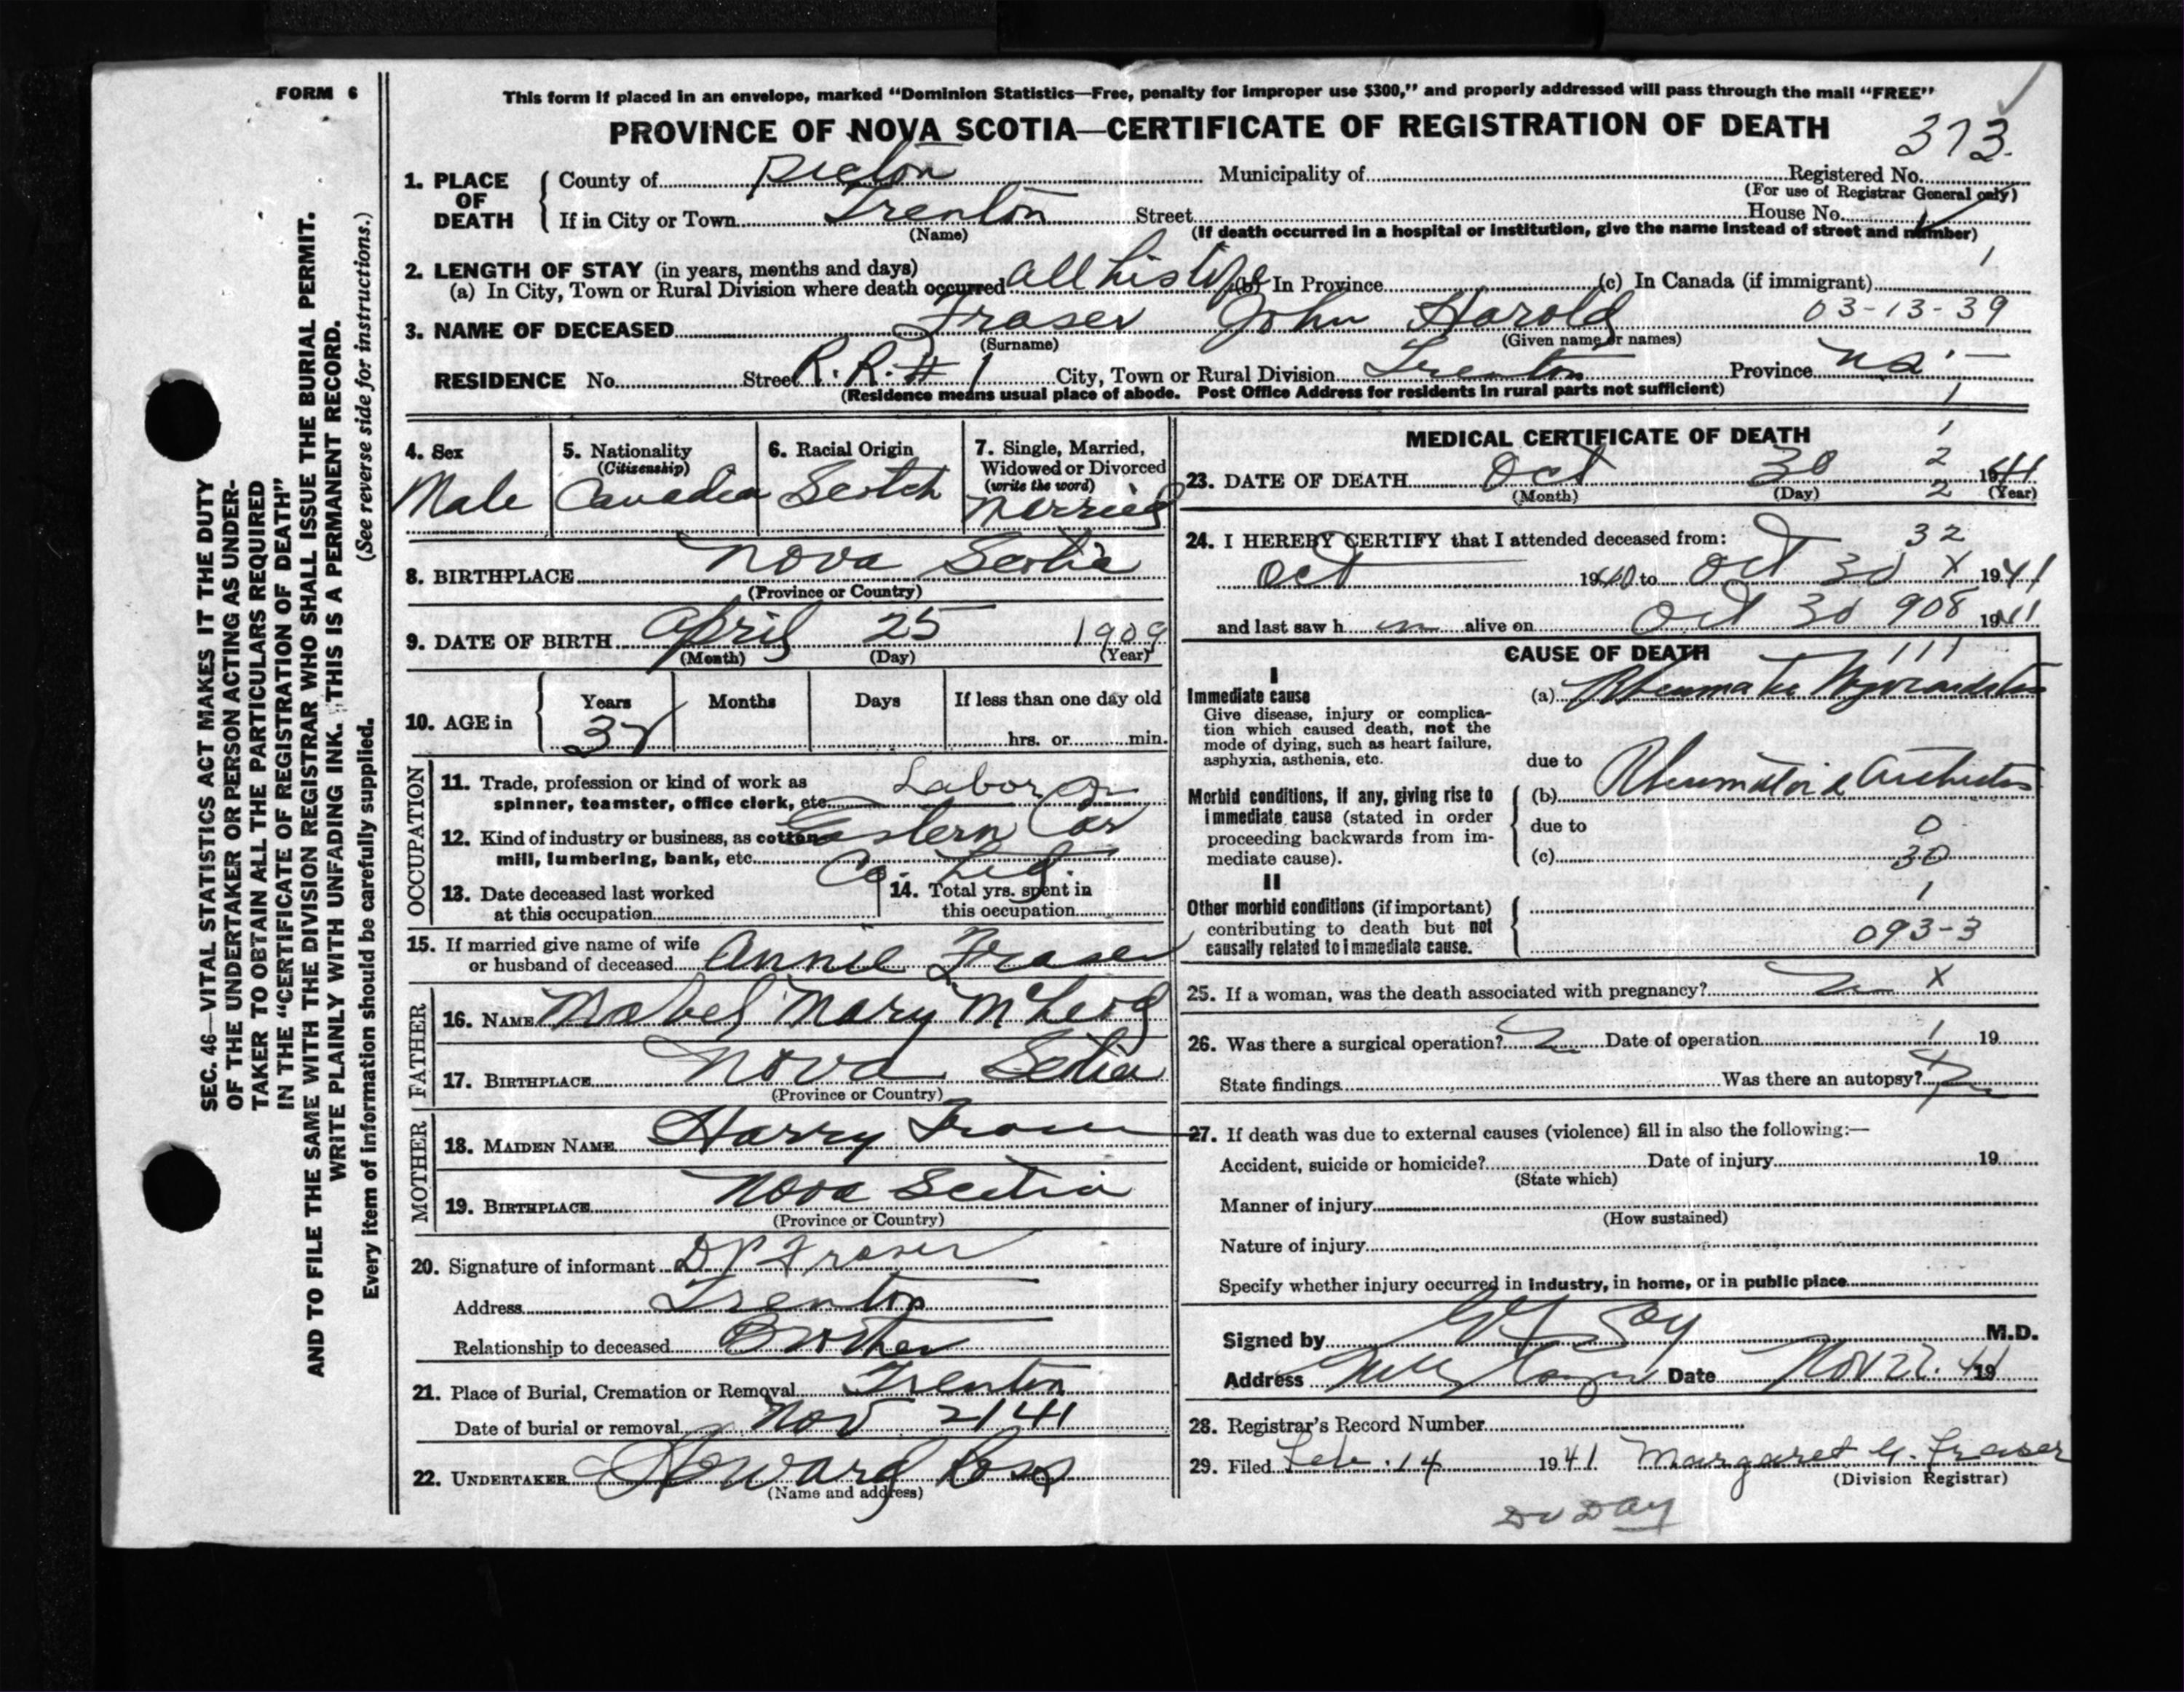 FORM 6
This form if placed in an envelope, marked "Dominion Statistics—Free, penalty for improper use $300," and properly addressed will pass through the mail "FREE"
PROVINCE OF NOVA SCOTIA—CERTIFICATE OF REGISTRATION OF DEATH
373.
SEC. 46—VITAL STATISTICS ACT MAKES IT THE DUTY
OF THE UNDERTAKER OR PERSON ACTING AS UNDER-
TAKER TO OBTAIN ALL THE PARTICULARS REQUIRED
IN THE "CERTIFICATE OF REGISTRATION OF DEATH"
AND TO FILE THE SAME WITH THE DIVISION REGISTRAR WHO SHALL ISSUE THE BURIAL PERMIT.
WRITE PLAINLY WITH UNFADING INK. THIS IS A PERMANENT RECORD.
Every item of information should be carefully supplied. (See reverse side for instructions.)
1. PLACE OF DEATH County of Pictou Municipality of Registered No.
(For use of Registrar General only)
If in City or Town Trenton Street House No.
(Name) (If death occurred in a hospital or institution, give the name instead of street and number)
2. LENGTH OF STAY (in years, months and days) 1
(a) In City, Town or Rural Division where death occurred all his life (b) In Province (c) In Canada (if immigrant)
3. NAME OF DECEASED Fraser John Harold 03-13-39
(Surname) (Given name or names)
RESIDENCE No. Street R.R.# 1 City, Town or Rural Division Trenton Province N.S.
(Residence means usual place of abode. Post Office Address for residents in rural parts not sufficient) 1
4. Sex Male
5. Nationality (Citizenship) Canadian
6. Racial Origin Scotch
7. Single, Married, Widowed or Divorced (write the word) Married
8. BIRTHPLACE Nova Scotia
(Province or Country)
9. DATE OF BIRTH April 25 1909
(Month) (Day) (Year)
10. AGE in Years Months Days If less than one day old
32 hrs. or min.
OCCUPATION
11. Trade, profession or kind of work as Labor
spinner, teamster, office clerk, etc.
12. Kind of industry or business, as cotton Eastern Car
mill, lumbering, bank, etc. Co. Ltd.
13. Date deceased last worked at this occupation
14. Total yrs. spent in this occupation
15. If married give name of wife
or husband of deceased Annie Fraser
FATHER
16. NAME Mabel Mary McLeod
17. BIRTHPLACE Nova Scotia
(Province or Country)
MOTHER
18. MAIDEN NAME Harry Fraser
19. BIRTHPLACE Nova Scotia
(Province or Country)
20. Signature of informant D P Fraser
Address Trenton
Relationship to deceased Brother
21. Place of Burial, Cremation or Removal Trenton
Date of burial or removal Nov 2 1941
22. UNDERTAKER Howard Ross
(Name and address)
MEDICAL CERTIFICATE OF DEATH 1
2
23. DATE OF DEATH Oct 30 1941
(Month) (Day) 2 (Year)
24. I HEREBY CERTIFY that I attended deceased from: 32
Oct 1940 to Oct 30 X 1941
and last saw h im alive on Oct 30 908 1941
CAUSE OF DEATH 111
I
Immediate cause (a) Rheumatic Myocarditis
Give disease, injury or complica-
tion which caused death, not the
mode of dying, such as heart failure,
asphyxia, asthenia, etc.
due to
Morbid conditions, if any, giving rise to (b) Rheumatoid Arthritis
immediate cause (stated in order
proceeding backwards from im-
mediate cause).
due to 0
(c) 30
II 1
Other morbid conditions (if important)
contributing to death but not
causally related to immediate cause. 093-3
25. If a woman, was the death associated with pregnancy? X
26. Was there a surgical operation? Date of operation 1 19
State findings Was there an autopsy? X
27. If death was due to external causes (violence) fill in also the following:—
Accident, suicide or homicide? Date of injury 19
(State which)
Manner of injury
(How sustained)
Nature of injury
Specify whether injury occurred in industry, in home, or in public place
Signed by M.D.
Address Date Nov 22. 41 19
28. Registrar's Record Number
29. Filed Feb. 14 1941 Margaret G. Fraser
(Division Registrar)
Dr Day